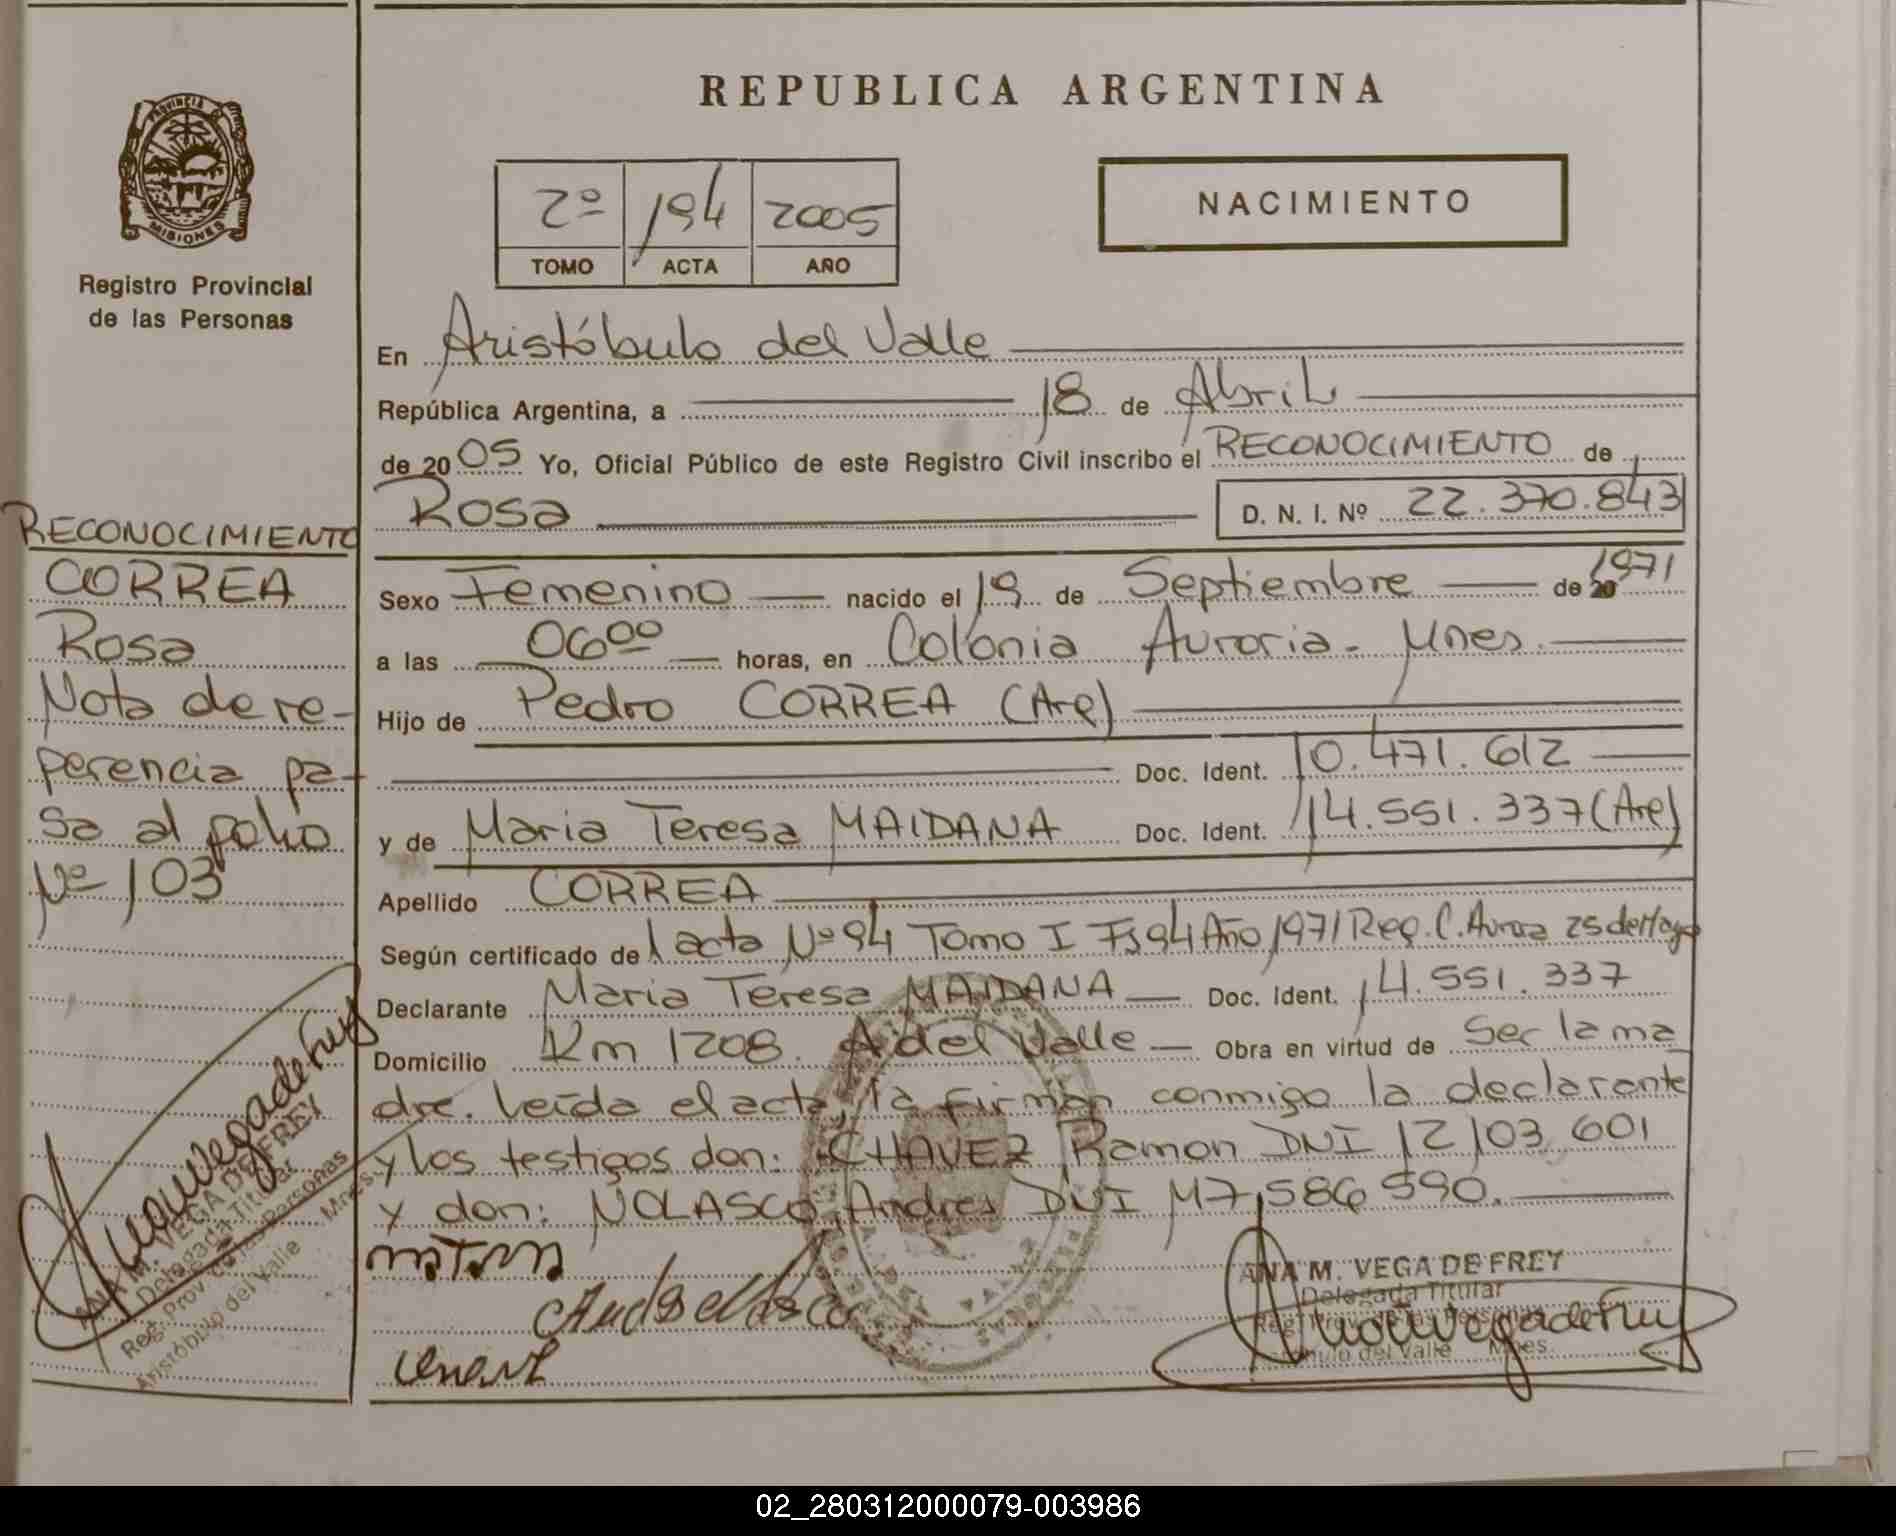 REPUBLICA ARGENTINA
PROVINCIA
MISIONES
Registro Provincial
de las Personas
2º 194 2005
TOMO ACTA AÑO
NACIMIENTO
En Aristóbulo del Valle
República Argentina, a 18 de Abril
de 2005 Yo, Oficial Público de este Registro Civil inscribo el RECONOCIMIENTO de
Rosa D. N. I. Nº 22.370.843
Sexo Femenino nacido el 19 de Septiembre de 20 1971
a las 06 00 horas, en Colonia Auroria - Mnes.
Hijo de Pedro CORREA (Arg)
Doc. Ident. 10.471.612
y de Maria Teresa MAIDANA Doc. Ident. 14.551.337 (Arg)
Apellido CORREA
Según certificado de acta Nº 94 Tomo I Fs 94 Año 1971 Reg. C. Aurora 25 de Mayo
Declarante Maria Teresa MAIDANA Doc. Ident. 14.551.337
Domicilio Km 1208. A. del Valle Obra en virtud de Ser la ma
dre. leída el acta, la firman conmigo la declarante
y los testigos don: CHAVEZ Ramon DNI 12.103.601
y don: NOLASCO, Andres DNI M7.586.590.
MTM
ANA M. VEGA DE FREY
Delegada Titular
Reg. Prov. de las Personas
Aristóbulo del Valle Mnes.
RECONOCIMIENTO
CORREA
Rosa
Nota de re-
ferencia pa-
sa al folio
Nº 103
ANA M. VEGA DE FREY
Delegada Titular
Reg. Prov. de las Personas
Aristóbulo del Valle Mnes.
02_280312000079-003986